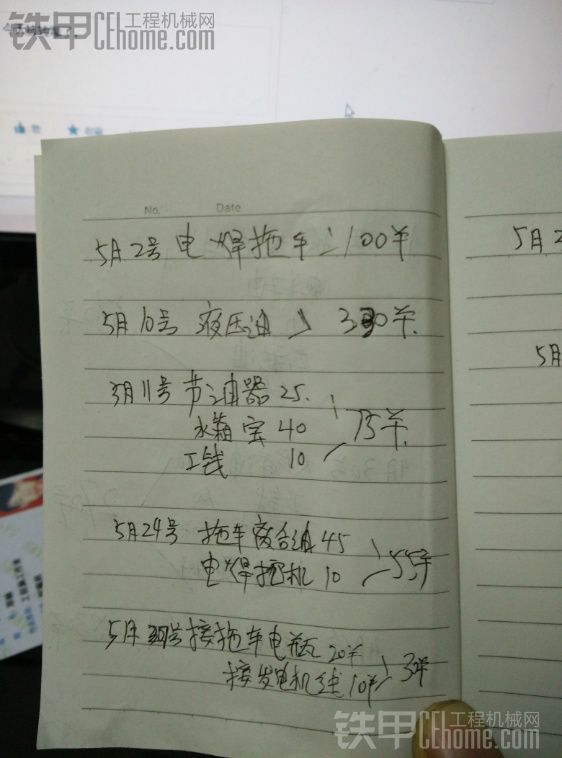 铁甲 工程机械网 CEhome.com
赞 收藏
No. Date
5月2号 电焊拖车 100羊
5月10号 液压油 330羊
5月11号 节油器 25.
水箱宝 40 75羊
工钱 10
5月24号 拖车 45
电焊拖机 10 55羊
5月 号接拖车电瓶 20羊
接发电机线 10羊 3羊
5月2
5月
铁甲 工程机械网 CEhome.com